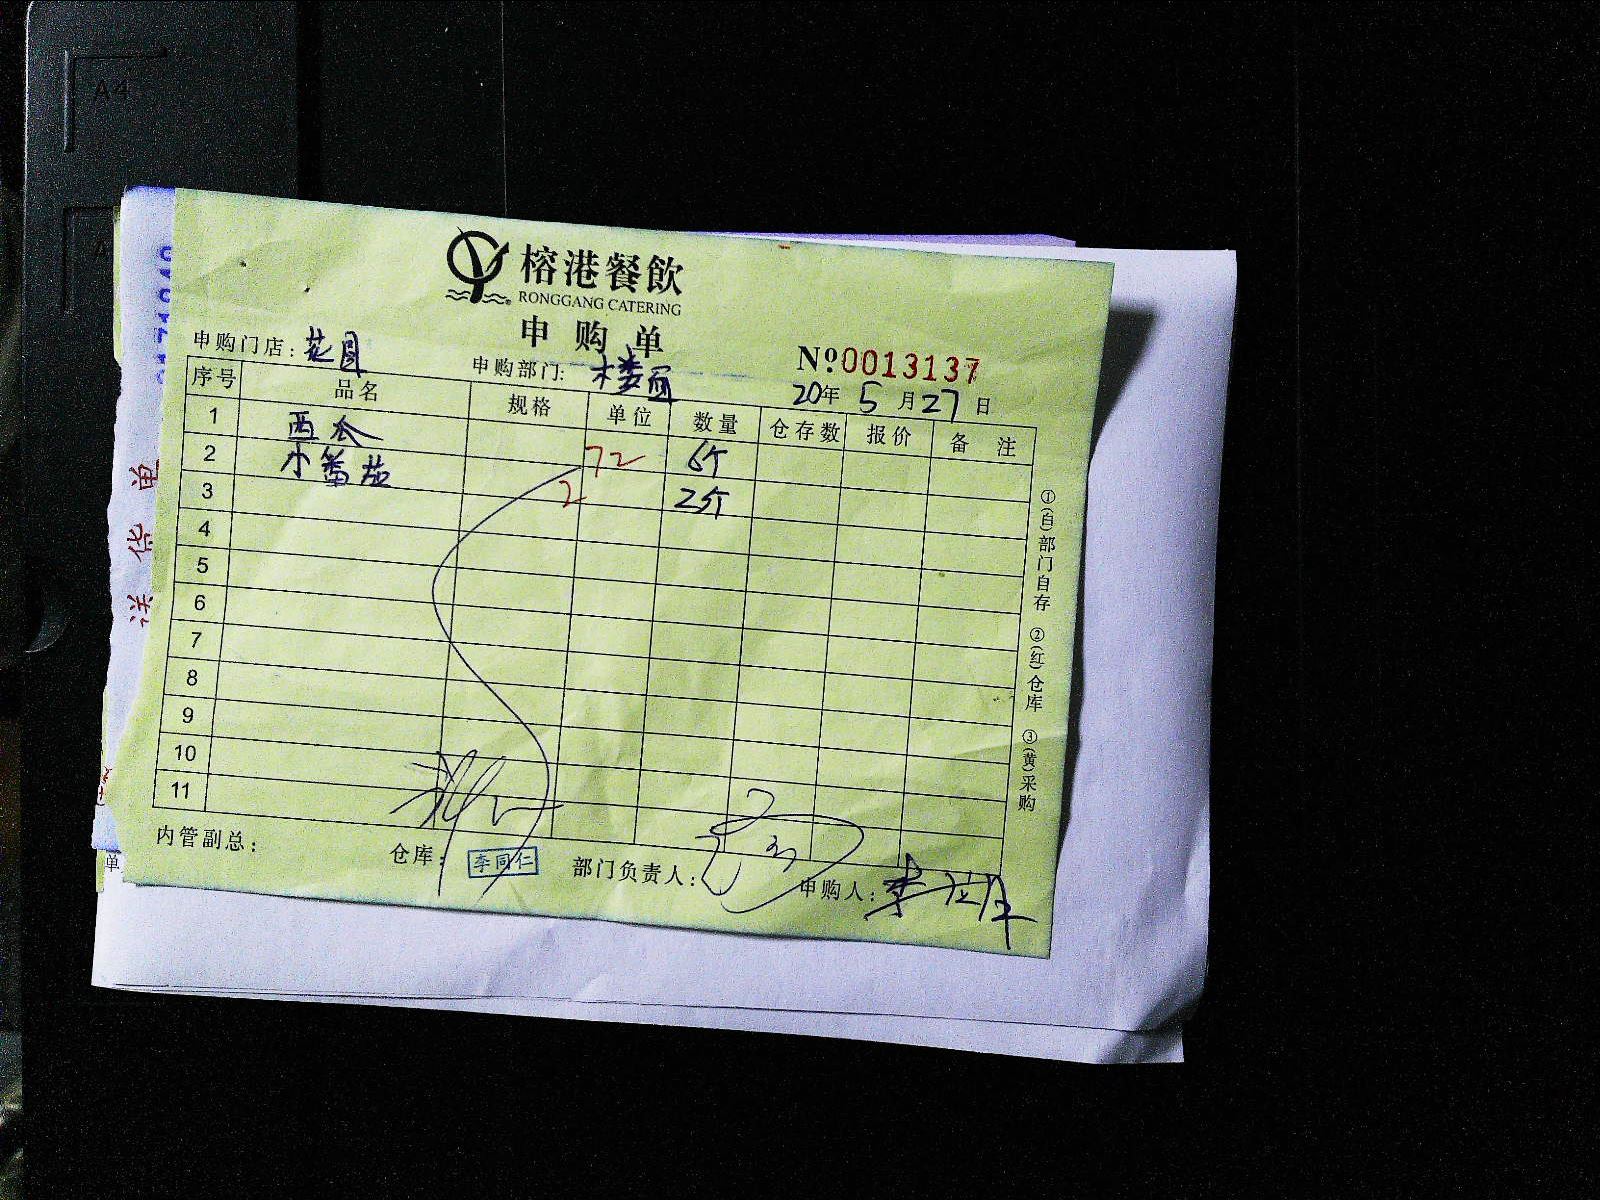 榕港餐飲
RONGGANG CATERING
申购单
申购门店：花园
申购部门：楼面
Nº0013137
20年5月27日
序号 品名 规格 单位 数量 仓存数 报价 备注
1 西瓜 72 6个
2 小番茄 2 2斤
3
4
5
6
7
8
9
10
11
①(白)部门自存 ②(红)仓库 ③(黄)采购
内管副总：
仓库： 李同仁
部门负责人：
申购人：
送货单
单
A4